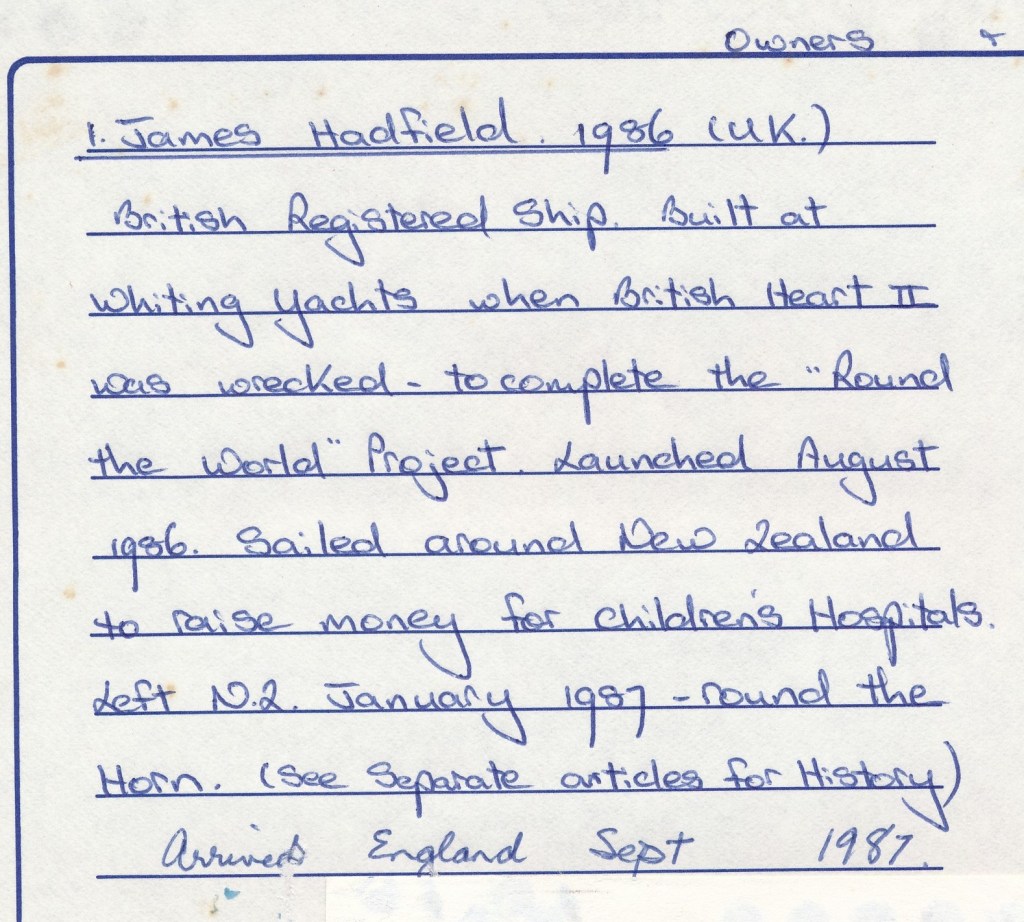 Owners &
1. James Hadfield. 1986 (U.K.)
British Registered Ship. Built at
Whiting Yachts when British Heart II
was wrecked - to complete the "Round
the World" Project. Launched August
1986. Sailed around New Zealand
to raise money for children's Hospitals.
Left N.Z. January 1987 - round the
Horn. (See Separate articles for History)
Arrived England Sept 1987.